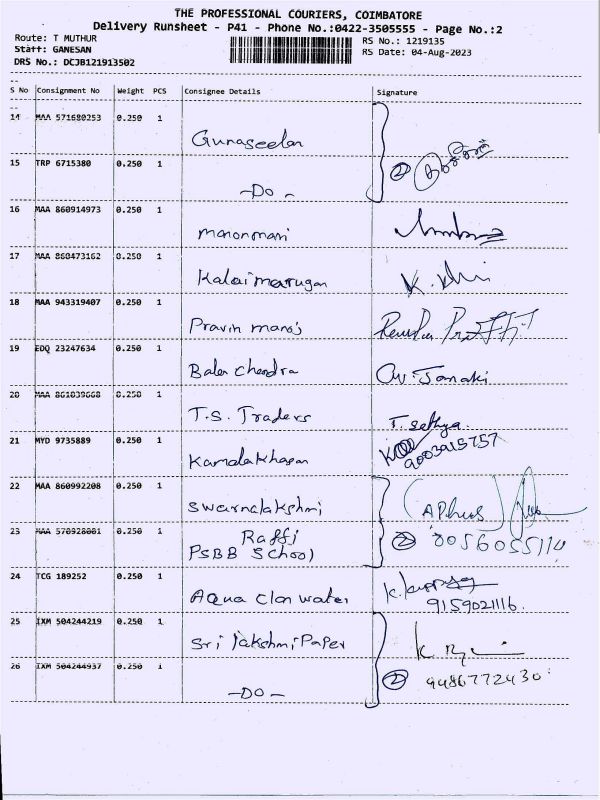 THE PROFESSIONAL COURIERS, COIMBATORE
Delivery Runsheet - P41 - Phone No.:0422-3505555 - Page No.:2
Route: T MUTHUR
RS No.: 1219135
Staff: GANESAN
RS Date: 04-Aug-2023
DRS No.: DCJB121913502
S No Consignment No Weight PCS Consignee Details Signature
14 MAA 571680253 0.250 1
Gunaseelan
15 TRP 6715380 0.250 1
2
-Do-
16 MAA 860914973 0.250 1
manonmani
17 MAA 860473162 0.250 1
Kalaimarugan
18 MAA 943319407 0.250 1
Pravin manoj
19 EDQ 23247634 0.250 1
Bala Chandra
Janaki
20 MAA 861039668 0.250 1
T.S. Traders T. Sathya
21 MYD 9735889 0.250 1
9003915757
22 MAA 860992208 0.250 1
Swarnalakshmi
23 MAA 570928001 0.250 1
Raffi 2 8056055110
PSBB School
24 TCG 189252 0.250 1
Aqua Clan water 9159021116
25 IXM 504244219 0.250 1
Sri lakshmi Paper
26 IXM 504244937 0.250 1
2 9486772430
-DO-